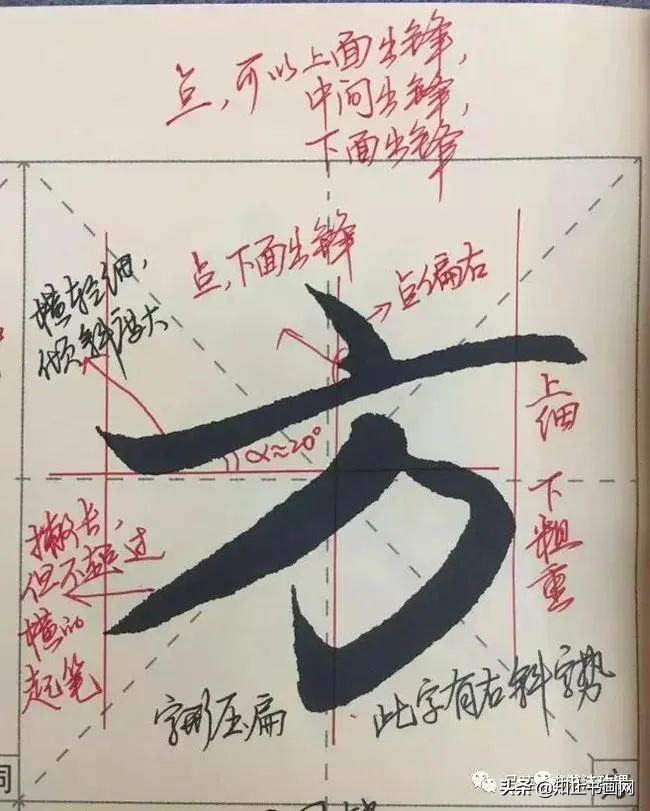 点,可以上面出锋,
中间出锋,
下面出锋
点,下面出锋
点偏右
横轻细,
倾斜度大
方
α≈20°
上细
下粗重
撇长,
但不超过
横的
起笔
字形压扁
此字有右斜字势
头条 @知止书画网